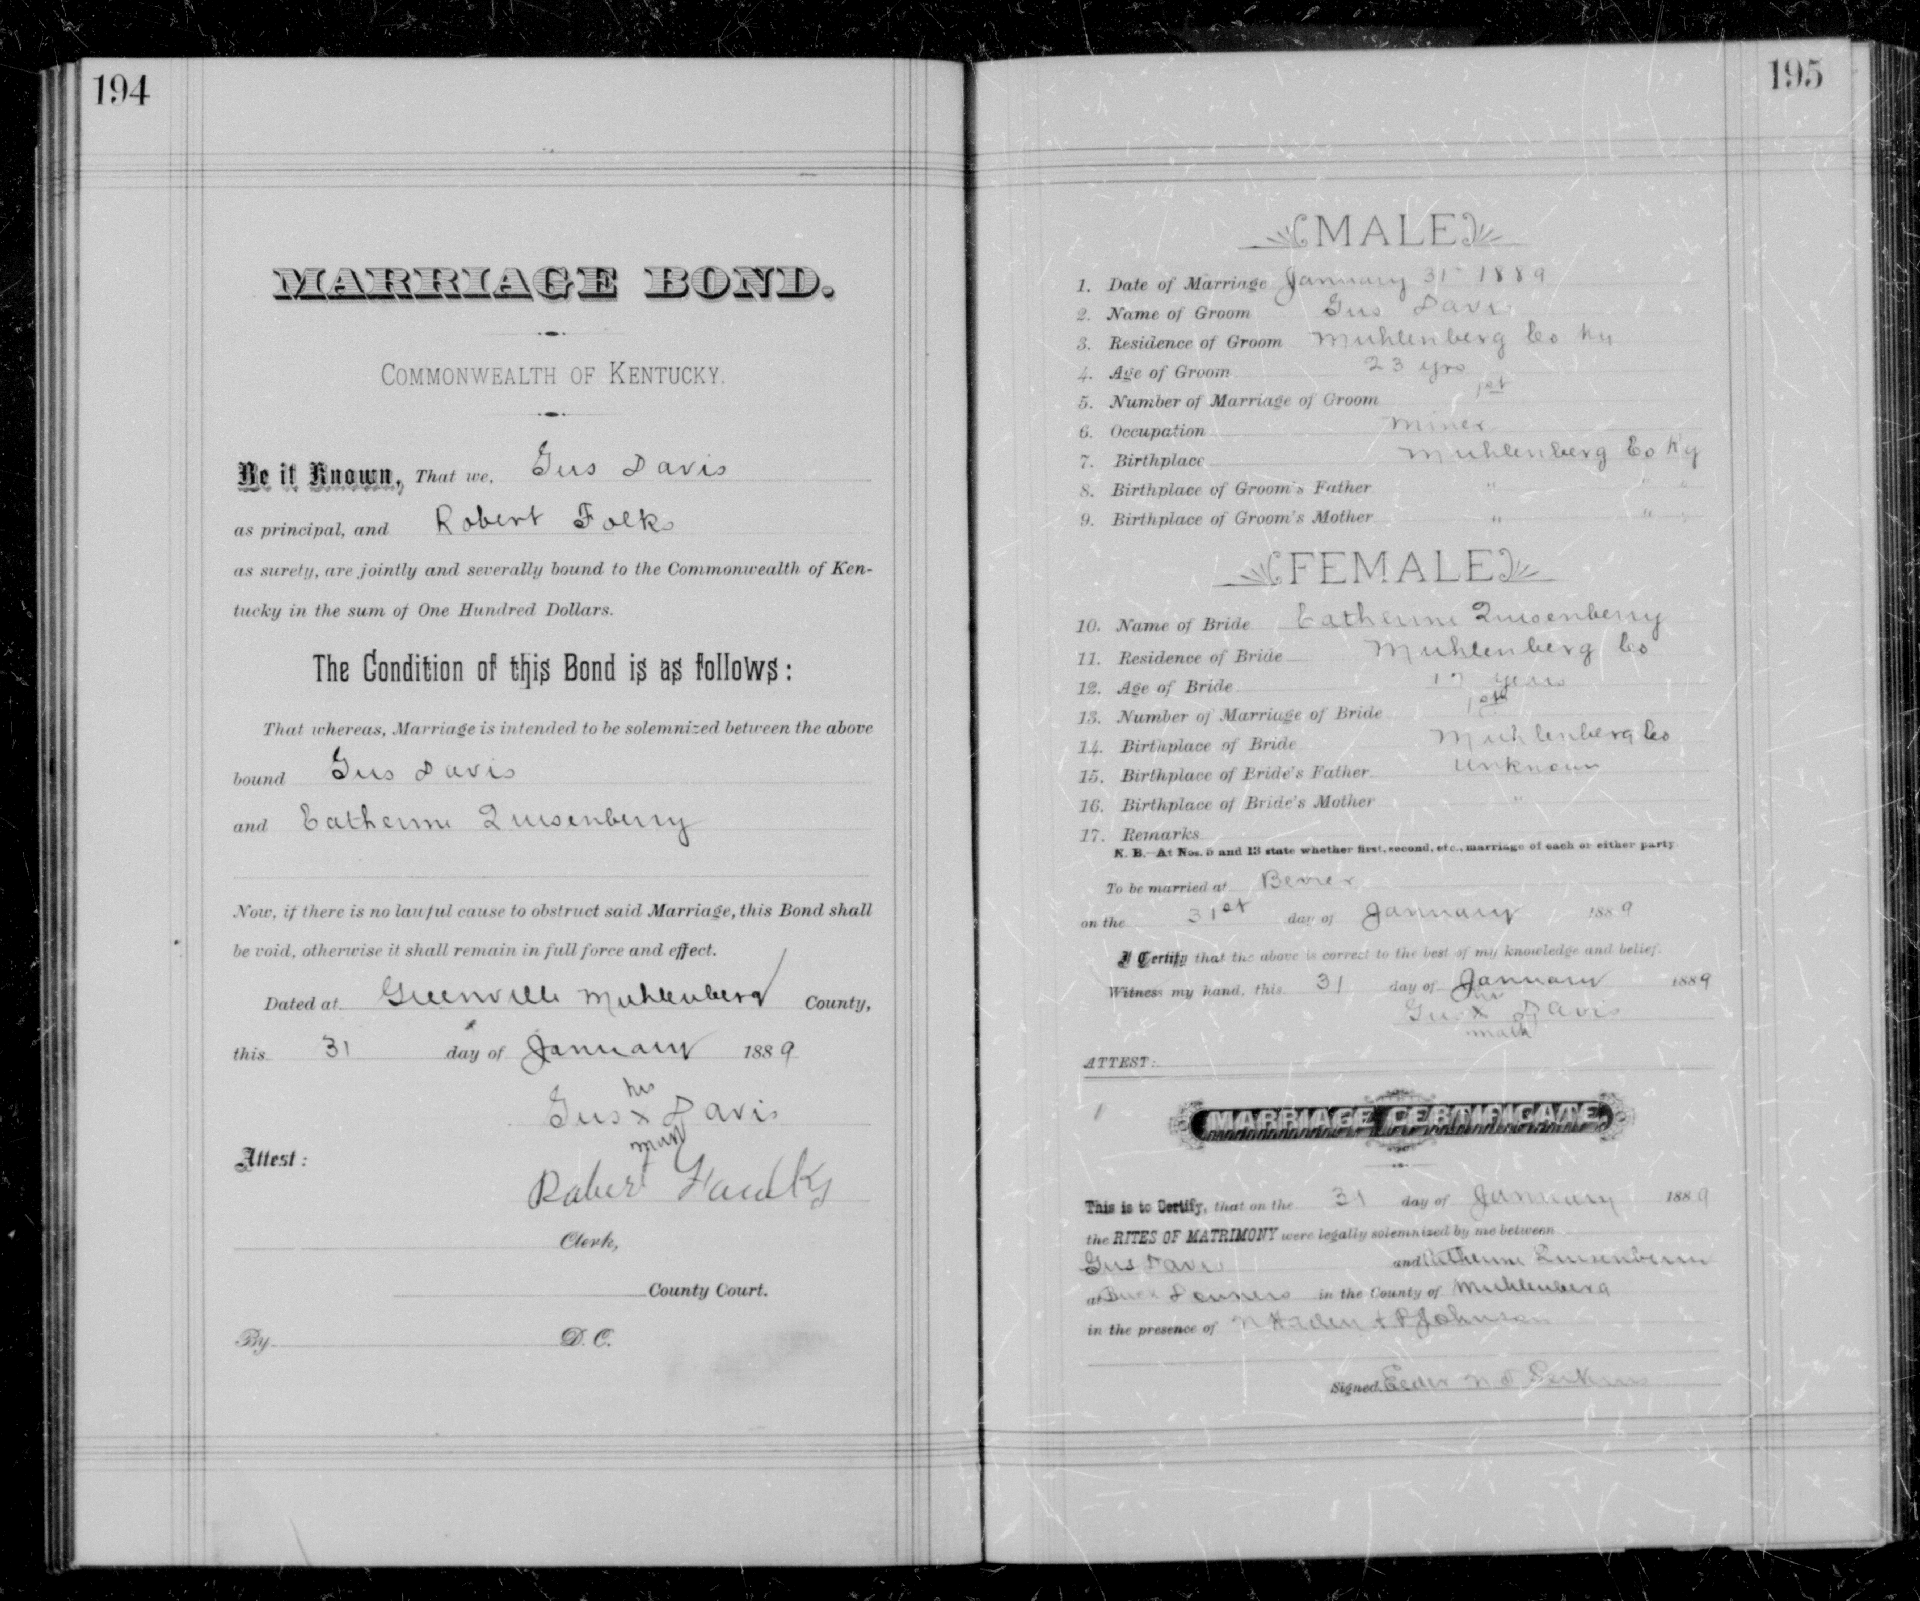 194
MARRIAGE BOND.
COMMONWEALTH OF KENTUCKY.
Be it Known, That we, Gus Davis
as principal, and Robert Folks
as surety, are jointly and severally bound to the Commonwealth of Ken-
tucky in the sum of One Hundred Dollars.
The Condition of this Bond is as follows:
That whereas, Marriage is intended to be solemnized between the above
bound Gus Davis
and Catherine Quisenberry
Now, if there is no lawful cause to obstruct said Marriage, this Bond shall
be void, otherwise it shall remain in full force and effect.
Dated at Greenville Muhlenberg County,
this 31 day of January 1889
his
Gus x Davis
mark
Attest:
Robert
Clerk,
County Court.
By D. C.
195
MALE
1. Date of Marriage January 31st 1889
2. Name of Groom Gus Davis
3. Residence of Groom Muhlenberg Co Ky
4. Age of Groom 23 yrs
5. Number of Marriage of Groom 1st
6. Occupation Miner
7. Birthplace Muhlenberg Co Ky
8. Birthplace of Groom's Father " "
9. Birthplace of Groom's Mother " "
FEMALE
10. Name of Bride Catherine Quisenberry
11. Residence of Bride Muhlenberg Co
12. Age of Bride 17 years
13. Number of Marriage of Bride 1st
14. Birthplace of Bride Muhlenberg Co
15. Birthplace of Bride's Father Unknown
16. Birthplace of Bride's Mother "
17. Remarks
N. B.—At Nos. 5 and 13 state whether first, second, etc., marriage of each or either party
To be married at Bevier
on the 31st day of January 1889
I Certify that the above is correct to the best of my knowledge and belief.
Witness my hand, this 31 day of January 1889
his
Gus x Davis
mark
ATTEST:
MARRIAGE CERTIFICATE.
This is to Certify, that on the 31 day of January 1889
the RITES OF MATRIMONY were legally solemnized by me between
Gus Davis and Catherine Quisenberry
at in the County of Muhlenberg
in the presence of Johnson
Signed, Elder Perkins